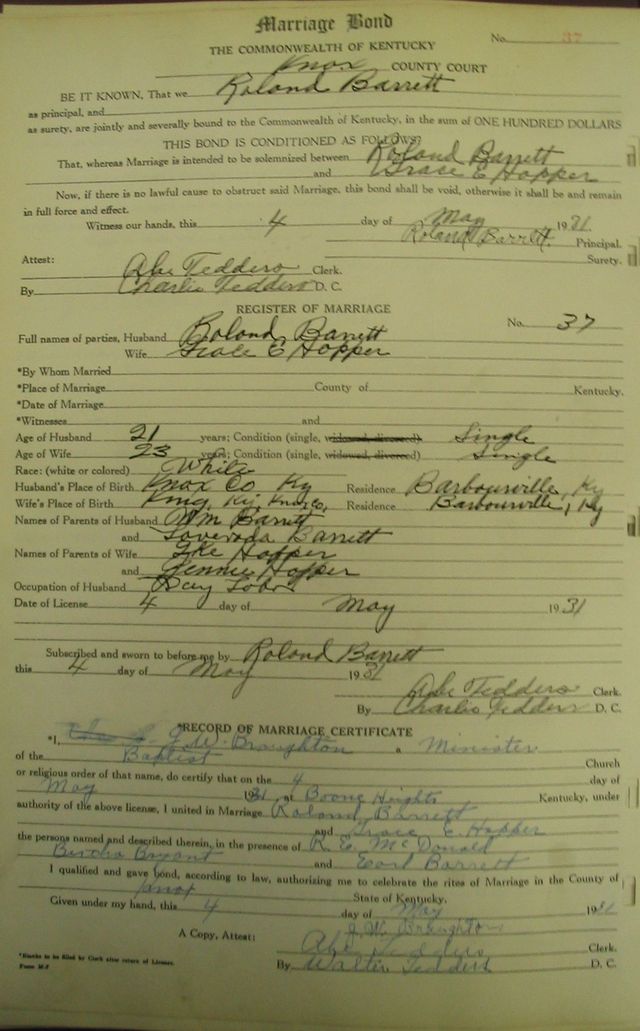 Marriage Bond
No. 37
THE COMMONWEALTH OF KENTUCKY
Knox COUNTY COURT
BE IT KNOWN, That we Roland Barrett
as principal, and
as surety, are jointly and severally bound to the Commonwealth of Kentucky, in the sum of ONE HUNDRED DOLLARS
THIS BOND IS CONDITIONED AS FOLLOWS?
That, whereas Marriage is intended to be solemnized between Roland Barrett
and Grace E Hopper
Now, if there is no lawful cause to obstruct said Marriage, this bond shall be void, otherwise it shall be and remain
in full force and effect.
Witness our hands, this 4 day of May 1931.
Roland Barrett. Principal.
Surety.
Attest:
Abe Tedders Clerk.
By Charlie Tedders D. C.
REGISTER OF MARRIAGE
No. 37
Full names of parties, Husband Roland Barrett
Wife Grace E Hopper
*By Whom Married
*Place of Marriage County of Kentucky.
*Date of Marriage
*Witnesses and
Age of Husband 21 years; Condition (single, widowed, divorced) Single
Age of Wife 23 years; Condition (single, widowed, divorced) Single
Race: (white or colored) White
Husband's Place of Birth Knox Co Ky Residence Barbourville, Ky
Wife's Place of Birth Ky, Knox Co, Residence Barbourville, Ky
Names of Parents of Husband Wm Barrett
and Barrett
Names of Parents of Wife Ike Hopper
and Jennie Hopper
Occupation of Husband Day Labor
Date of License 4 day of May 1931
Subscribed and sworn to before me by Roland Barrett
this 4 day of May 1931
Abe Tedders Clerk.
By Charlie Tedders D. C.
*RECORD OF MARRIAGE CERTIFICATE
*I, J. W. Broughton a Minister
of the Baptist Church
or religious order of that name, do certify that on the 4 day of
May 1931, at Boone Heights Kentucky, under
authority of the above license, I united in Marriage Roland Barrett
and Grace E. Hopper
the persons named and described therein, in the presence of R. E. McDonald
Bertha Bryant and Earl Barrett
I qualified and gave bond, according to law, authorizing me to celebrate the rites of Marriage in the County of
Knox State of Kentucky.
Given under my hand, this 4 day of May 1931
J. W. Broughton
A Copy, Attest: Abe Tedders Clerk.
By Walter Tedders D. C.
*Blanks to be filled by Clerk after return of License.